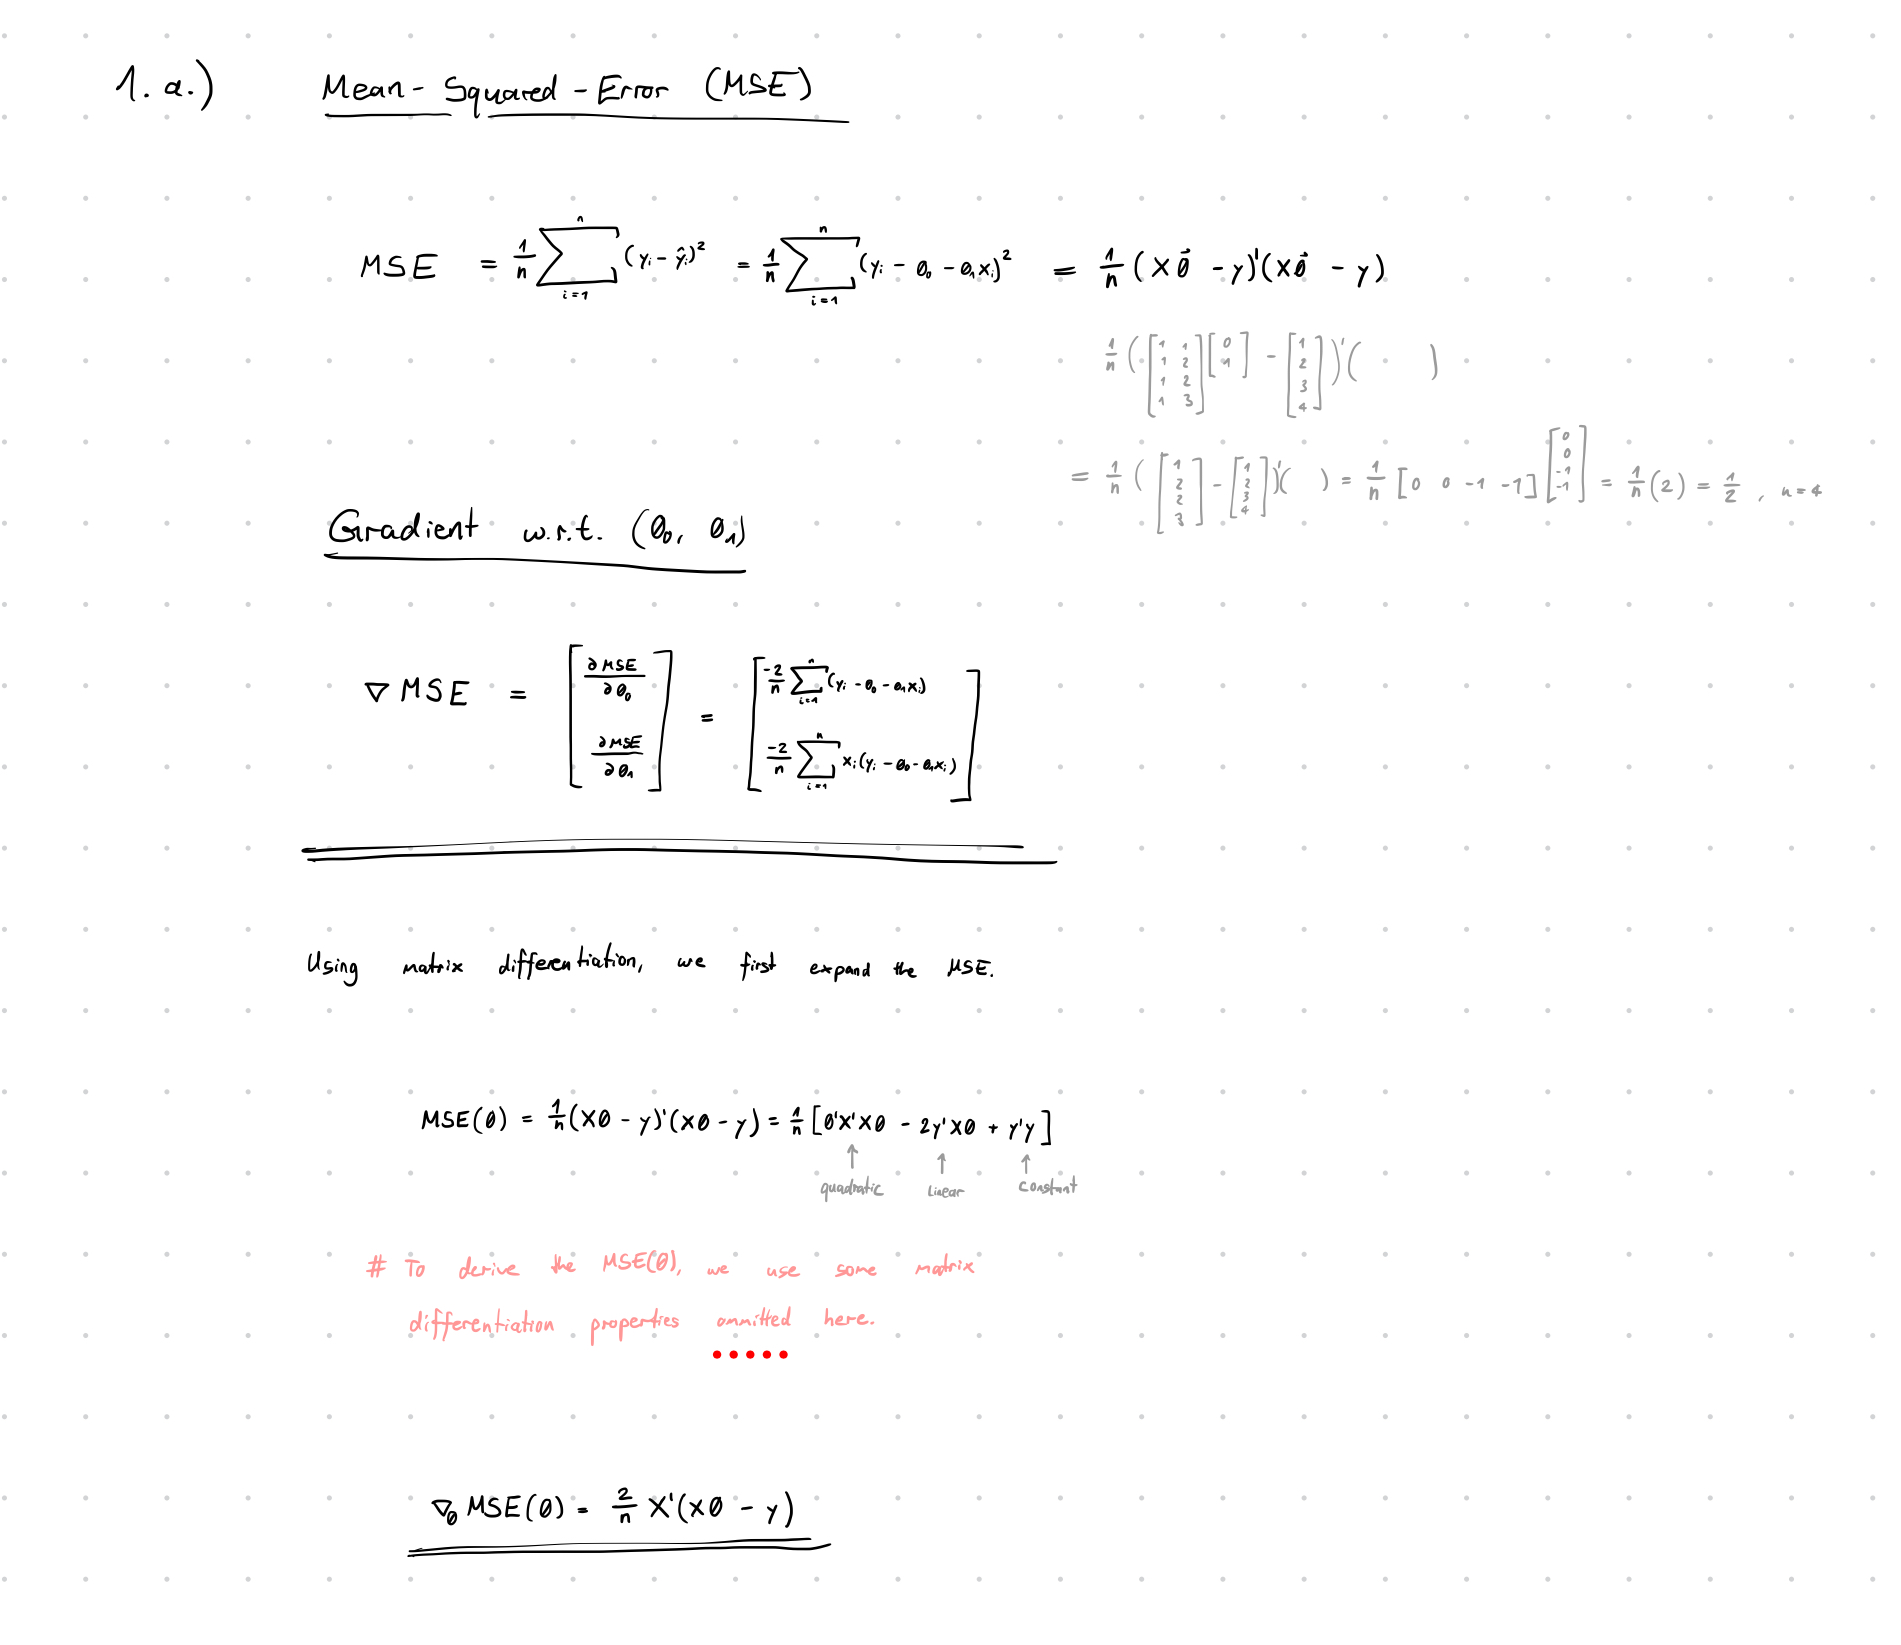 1. a.) Mean-Squared-Error (MSE)
MSE = 1/n ∑_{i=1}^{n} (y_i - ŷ_i)^2 = 1/n ∑_{i=1}^{n} (y_i - θ_0 - θ_1 x_i)^2 = 1/n (Xθ⃗ - y)'(Xθ⃗ - y)
1/n ([1 1; 1 2; 1 2; 1 3] [0; 1] - [1; 2; 3; 4])'( )
= 1/n ([1; 2; 2; 3] - [1; 2; 3; 4])'( ) = 1/n [0 0 -1 -1] [0; 0; -1; -1] = 1/n (2) = 1/2 , n=4
Gradient w.r.t. (θ_0, θ_1)
∇ MSE = [∂MSE/∂θ_0; ∂MSE/∂θ_1] = [-2/n ∑_{i=1}^{n} (y_i - θ_0 - θ_1 x_i); -2/n ∑_{i=1}^{n} x_i (y_i - θ_0 - θ_1 x_i)]
Using matrix differentiation, we first expand the MSE.
MSE(θ) = 1/n (Xθ - y)'(Xθ - y) = 1/n [θ'X'Xθ - 2y'Xθ + y'y]
↑ ↑ ↑
quadratic linear constant
# To derive the MSE(θ), we use some matrix
differentiation properties ommitted here.
∇_θ MSE(θ) = 2/n X'(Xθ - y)